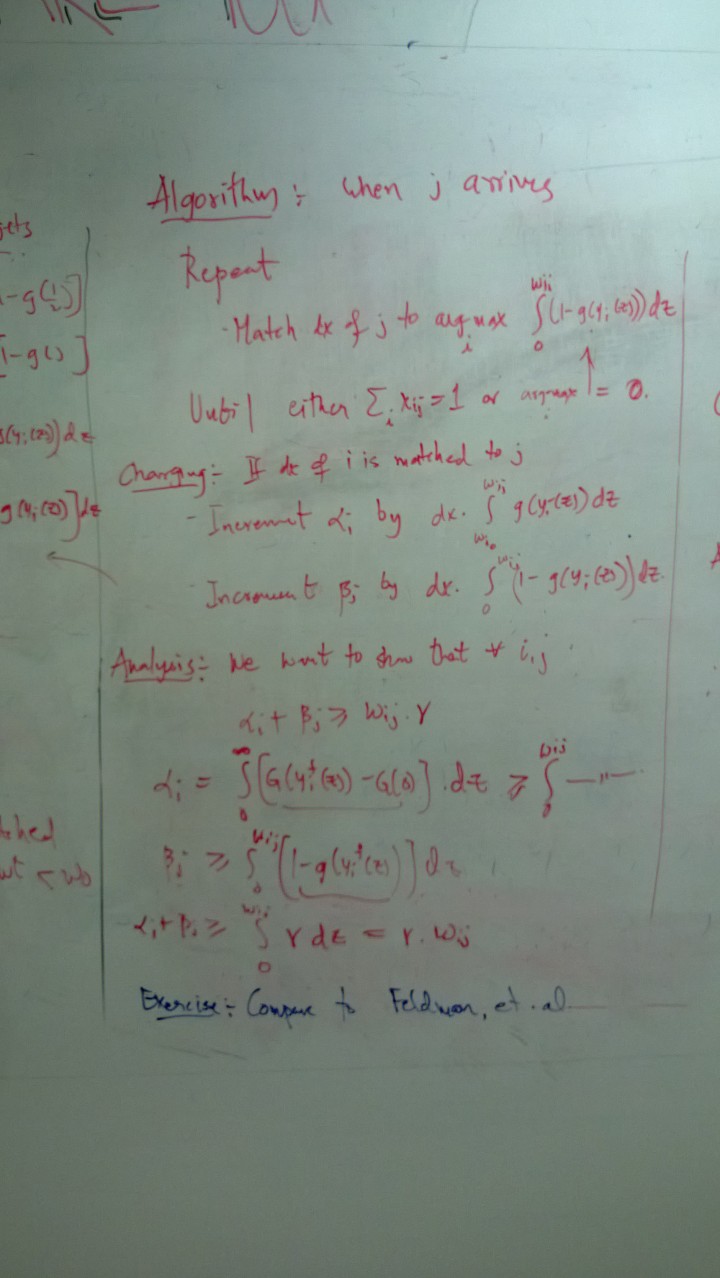 Algorithm :- when j arrives
Repeat
- Match dx of j to argmax_i ∫_0^{w_ij} (1-g(y_i(z))) dz
Until either Σ_i x_ij = 1 or argmax_i = 0.
Charging :- If dx of i is matched to j
- Increment α_i by dx. ∫_0^{w_ij} g(y_i(z)) dz
- Increment β_j by dx. ∫_0^{w_ij} (1-g(y_i(z))) dz.
Analysis :- We want to show that ∀ i,j
α_i + β_j ≥ w_ij . γ
α_i = ∫_0^∞ [G(y_i^f(z)) - G(0)] . dz ≥ ∫_0^{w_ij} —〃—
β_j ≥ ∫_0^{w_ij} [1-g(y_i^f(z))] dz
α_i + β_j ≥ ∫_0^{w_ij} γ dz = γ . w_ij
Exercise :- Compare to Feldman, et. al.
-g(1/2)]
1-g( ) ]
(y_i(z)) dz
g(y_i(z))] dz